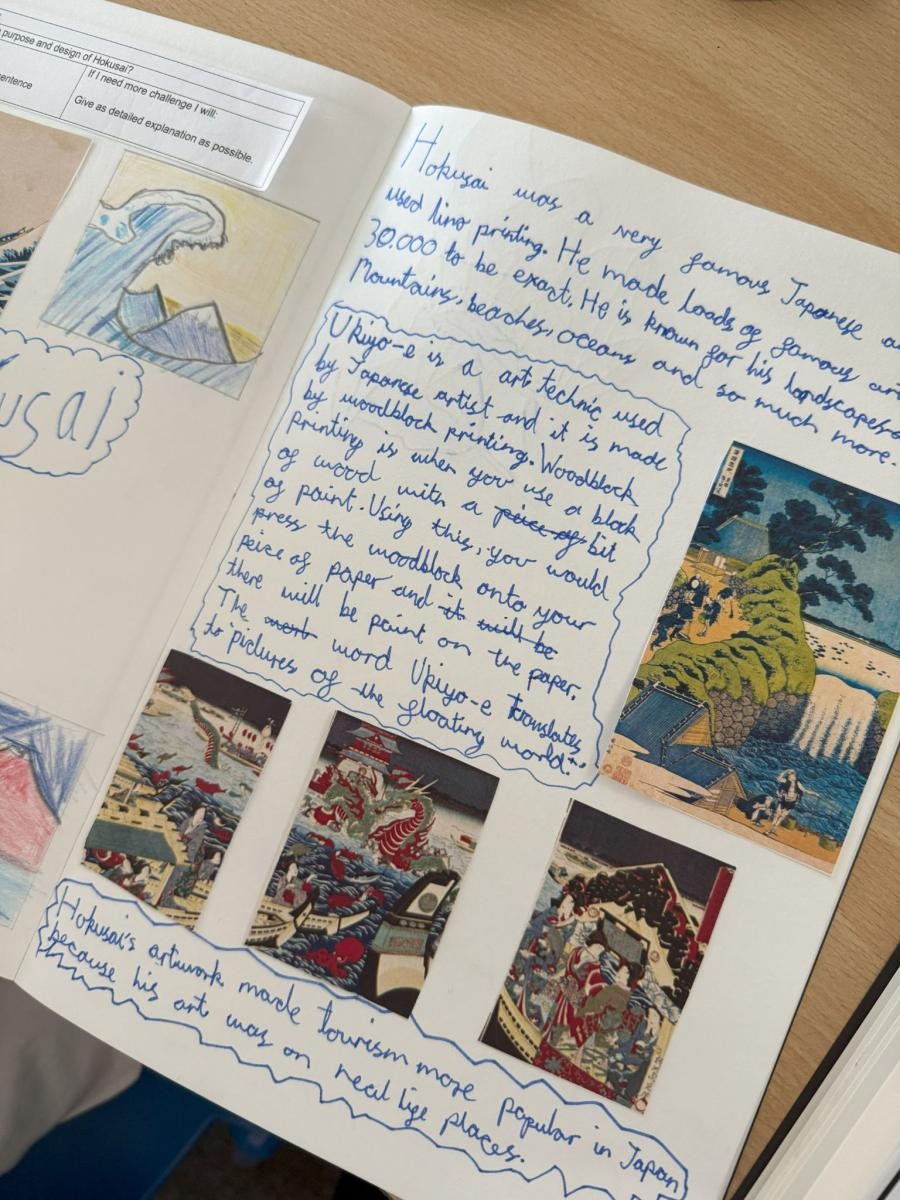 purpose and design of Hokusai?
If I need more challenge I will:
sentence
Give as detailed explanation as possible.
usai
Hokusai was a very famous Japanese
used lino printing. He made loads of famous art
30.000 to be exact. He is known for his landscapes
Mountains, beaches, oceans and so much more.
Ukiyo-e is a art technic used
by Japanese artist and it is made
by woodblock printing. Woodblock
printing is when you use a block
of wood with a peice of bit
of paint. Using this, you would
press the woodblock onto your
peize of paper and it will be
there will be paint on the paper.
The word Ukiyo-e translates
to "pictures of the floating world."
Hokusai's artwork made tourism more popular in Japan
because his art was on real life places.